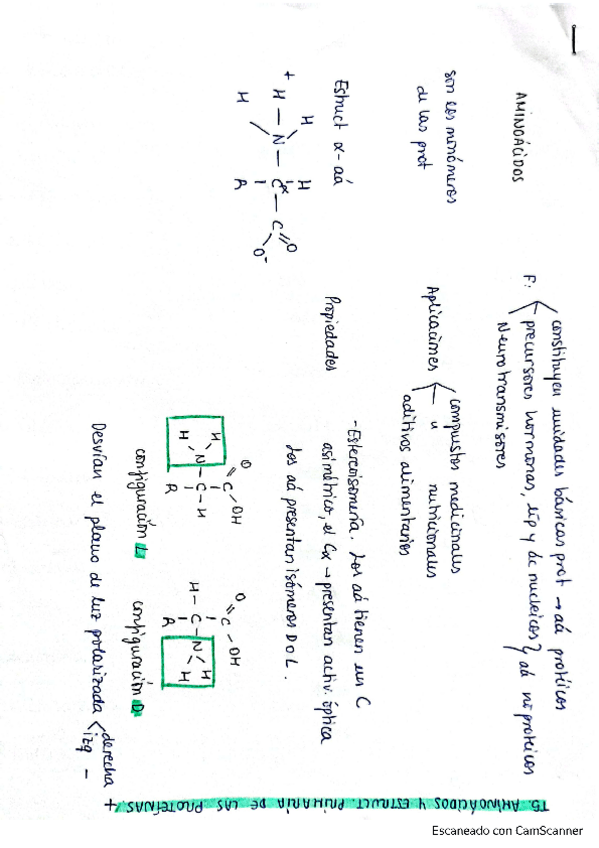 T5. AMINOÁCIDOS Y ESTRUCT. PRIMARIA DE LAS PROTEÍNAS
AMINOÁCIDOS
son los monómeros
de las prot
F:
constituyen unidades básicas prot → aá protéicos
precursores hormonas, lip y ác nucleicos } aá no protéicos
Neurotransmisores
Aplicaciones
compuestos medicinales
" nutricionales
aditivos alimentarios
Estruct α-aá
H
+
H — N — Cα — C
H
H
R
O
O⁻
Propiedades
- Estereoisomería. Los aá tienen un C
asimétrico, el Cα → presentan activ. óptica
Los aá presentan isómeros D o L.
O
C — OH
H
N — C — H
H
R
configuración L
O
C — OH
H — C — N
H
H
R
configuración D
Desvían el plano de luz polarizada
derecha +
izq -
Escaneado con CamScanner